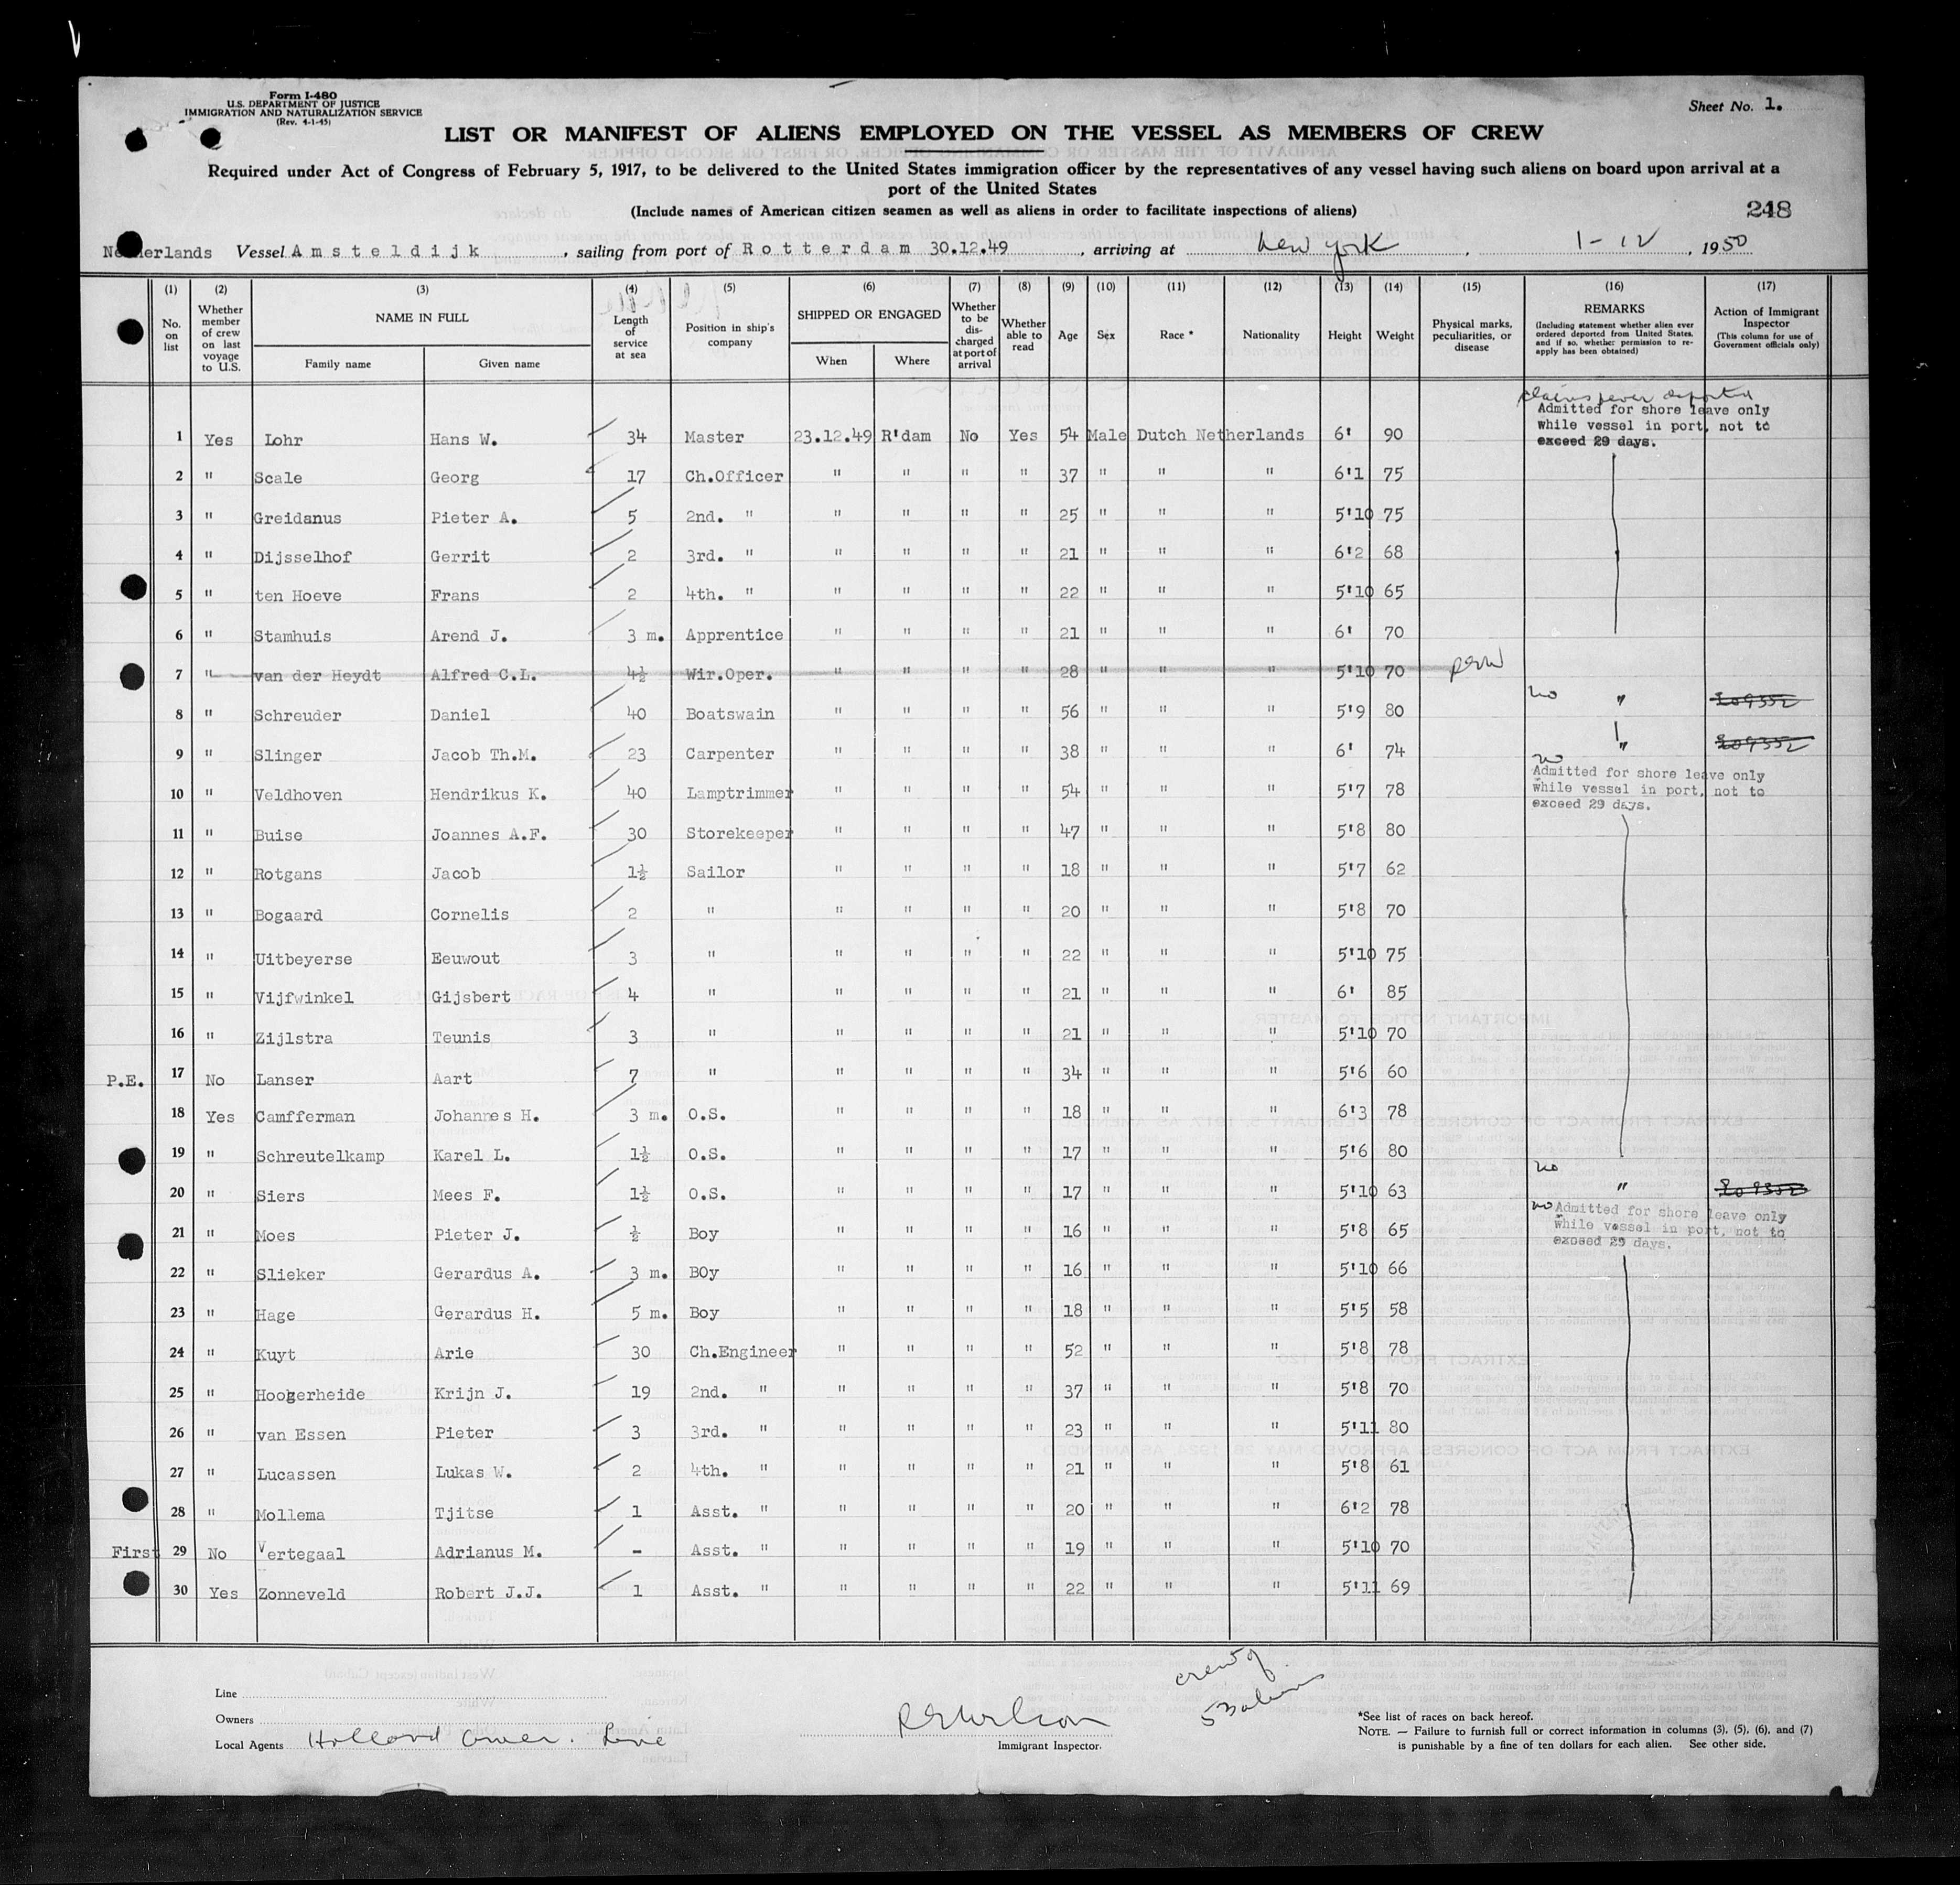 Form I-480
U.S. DEPARTMENT OF JUSTICE
IMMIGRATION AND NATURALIZATION SERVICE
(Rev. 4-1-45)
Sheet No. 1.
LIST OR MANIFEST OF ALIENS EMPLOYED ON THE VESSEL AS MEMBERS OF CREW
Required under Act of Congress of February 5, 1917, to be delivered to the United States immigration officer by the representatives of any vessel having such aliens on board upon arrival at a
port of the United States
(Include names of American citizen seamen as well as aliens in order to facilitate inspections of aliens)
248
Netherlands Vessel Amsteldijk, sailing from port of Rotterdam 30.12.49, arriving at New York, 1-12, 1950
(1) No. on list
(2) Whether member of crew on last voyage to U.S.
(3) NAME IN FULL Family name Given name
(4) Length of service at sea
(5) Position in ship's company
(6) SHIPPED OR ENGAGED When Where
(7) Whether to be discharged at port of arrival
(8) Whether able to read
(9) Age
(10) Sex
(11) Race *
(12) Nationality
(13) Height
(14) Weight
(15) Physical marks, peculiarities, or disease
(16) REMARKS (Including statement whether alien ever ordered deported from United States, and if so, whether permission to re-apply has been obtained)
(17) Action of Immigrant Inspector (This column for use of Government officials only)
claims never deported
Admitted for shore leave only
while vessel in port, not to
exceed 29 days.
1 Yes Lohr Hans W. 34 Master 23.12.49 R'dam No Yes 54 Male Dutch Netherlands 6' 90
2 " Scale Georg 17 Ch.Officer " " " " 37 " " " 6'1 75
3 " Greidanus Pieter A. 5 2nd. " " " " " 25 " " " 5'10 75
4 " Dijsselhof Gerrit 2 3rd. " " " " " 21 " " " 6'2 68
5 " ten Hoeve Frans 2 4th. " " " " " 22 " " " 5'10 65
6 " Stamhuis Arend J. 3 m. Apprentice " " " " 21 " " " 6' 70
7 " van der Heydt Alfred C.L. 4½ Wir.Oper. " " " " 28 " " " 5'10 70
8 " Schreuder Daniel 40 Boatswain " " " " 56 " " " 5'9 80 no "
9 " Slinger Jacob Th.M. 23 Carpenter " " " " 38 " " " 6' 74 "
no
Admitted for shore leave only
while vessel in port, not to
exceed 29 days.
10 " Veldhoven Hendrikus K. 40 Lamptrimmer " " " " 54 " " " 5'7 78
11 " Buise Joannes A.F. 30 Storekeeper " " " " 47 " " " 5'8 80
12 " Rotgans Jacob 1½ Sailor " " " " 18 " " " 5'7 62
13 " Bogaard Cornelis 2 " " " " " 20 " " " 5'8 70
14 " Uitbeyerse Eeuwout 3 " " " " " 22 " " " 5'10 75
15 " Vijfwinkel Gijsbert 4 " " " " " 21 " " " 6' 85
16 " Zijlstra Teunis 3 " " " " " 21 " " " 5'10 70
P.E. 17 No Lanser Aart 7 " " " " " 34 " " " 5'6 60
18 Yes Camfferman Johannes H. 3 m. O.S. " " " " 18 " " " 6'3 78
19 " Schreutelkamp Karel L. 1½ O.S. " " " " 17 " " " 5'6 80
20 " Siers Mees F. 1½ O.S. " " " " 17 " " " 5'10 63 no "
no Admitted for shore leave only
while vessel in port, not to
exceed 29 days.
21 " Moes Pieter J. ½ Boy " " " " 16 " " " 5'8 65
22 " Slieker Gerardus A. 3 m. BOy " " " " 16 " " " 5'10 66
23 " Hage Gerardus H. 5 m. Boy " " " " 18 " " " 5'5 58
24 " Kuyt Arie 30 Ch.Engineer " " " " 52 " " " 5'8 78
25 " Hoogerheide Krijn J. 19 2nd. " " " " " 37 " " " 5'8 70
26 " van Essen Pieter 3 3rd. " " " " " 23 " " " 5'11 80
27 " Lucassen Lukas W. 2 4th. " " " " " 21 " " " 5'8 61
28 " Mollema Tjitse 1 Asst. " " " " " 20 " " " 6'2 78
First 29 No Vertegaal Adrianus M. - Asst. " " " " " 19 " " " 5'10 70
30 Yes Zonneveld Robert J.J. 1 Asst. " " " " " 22 " " " 5'11 69
Line
Owners
Local Agents Holland Amer. Line
Immigrant Inspector.
crew of
53 aliens
*See list of races on back hereof.
NOTE. — Failure to furnish full or correct information in columns (3), (5), (6), and (7)
is punishable by a fine of ten dollars for each alien. See other side.